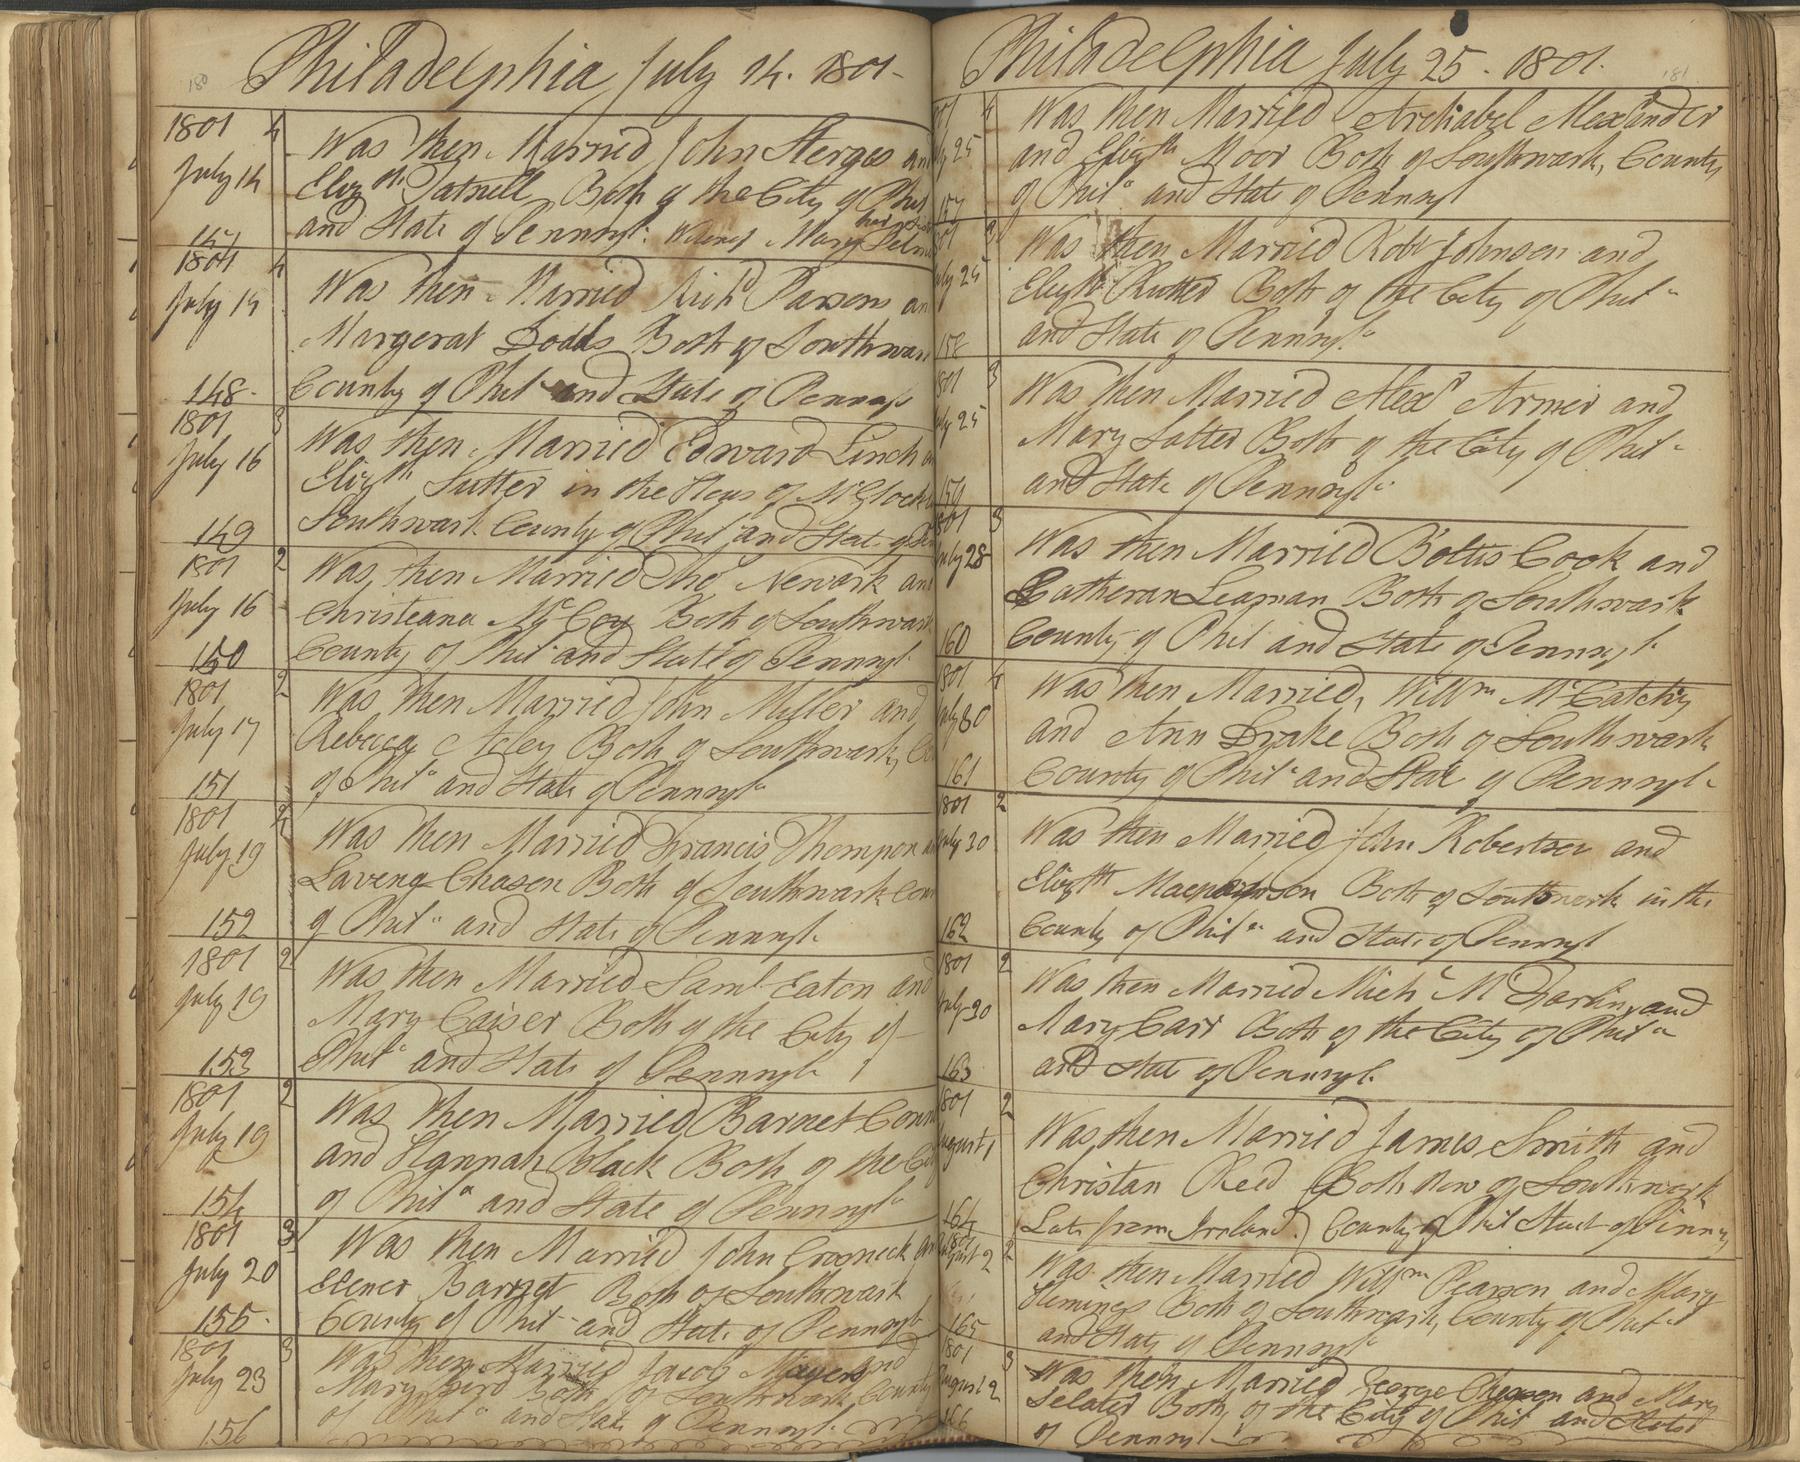 180
Philadelphia July 14. 1801-
1801 4
July 14
Was then Married John Sterges and
Elizth Tatnell Both of the City of Phil
and State of Pennsyl. Witness Mary
her
147
1801 4
July 14
Was then Married Richd Parsons an
Margerat Dodds Both of Southwar
148- County of Phil and State of Pennsyl
1801 3
July 16
Was then Married Edward Linch
Elizth Sutter in the Hous of
149 Southwark County of Phil and State of
1801 2
July 16
Was then Married Tho Newark an
Christeana McCoy Both of Southwark
150 County of Phila and State of Pennsyl
1801 2
July 17
Was then Married John Miller and
Rebecca Acley Both of Southwark, Co
151 of Phila and State of Pennsyl
1801 4
July 19
Was then Married Francis Thompson
Lavenea Chasen Both of Southwark Coun
152 of Phila and State of Pennsyl
1801 2
July 19
Was then Married Saml Eaton and
Mary Caiser Both of the City of
153 Phila and State of Pennsyl
1801 2
July 19
Was then Married Barnet Conn
and Hannah Black Both of the Ci
154 of Phila and State of Pennsyl
1801 3
July 20
Was then Married John Crooneck an
Elener Barret Both of Southwark
155- County of Phil and State of Pennsyl
1801 3
July 23
Was then Married Jacob Mayers and
Mary Both of Southwark County
156 of Phila and State of Pennsyl
181
Philadelphia July 25. 1801.
801 4
ly 25
Was then Married Archabel Alexander
and Elizth Moor Both of Southwark, County
157 of Phila and State of Pennsyl
801 3
uly 25
Was then Married Robt Johnson and
Elizth Rutter Both of the City of Phila
158 and State of Pennsyl
801 3
uly 25
Was then Married Alexr Armer and
Mary Salter Both of the City of Phila
159 and State of Pennsyl
801 3
July 28
Was then Married Boltus Cook and
Catheran Leaman Both of Southwark
160 County of Phil and State of Pennsyl
1801 4
July 30
Was then Married, Willm McCatchy
and Ann Drake Both of Southwark
161 County of Phila and Stat of Pennsyl
1801 2
July 30
Was then Married John Robertson and
Elizth Both of Southwark in the
162 County of Phila and State of Pennsyl
1801 2
July 30
Was then Married Michl McDarlin and
Mary Carr Both of the City of Phila
163 and State of Pennsyl
1801 2
August 1
Was then Married James Smith and
Christan Reed (Both Now of Southwark
164 Late from Ireland.) County of Phil Staet of Penns
1801 2
August 2
Was then Married Willm Pearson and Mary
Flemings Both of Southwark, County of Phila
165 and State of Pennsyl
1801 3
August 2
Was then Married George and Mary
Selater Both of the City of Phil and State
166 of Pennsyl